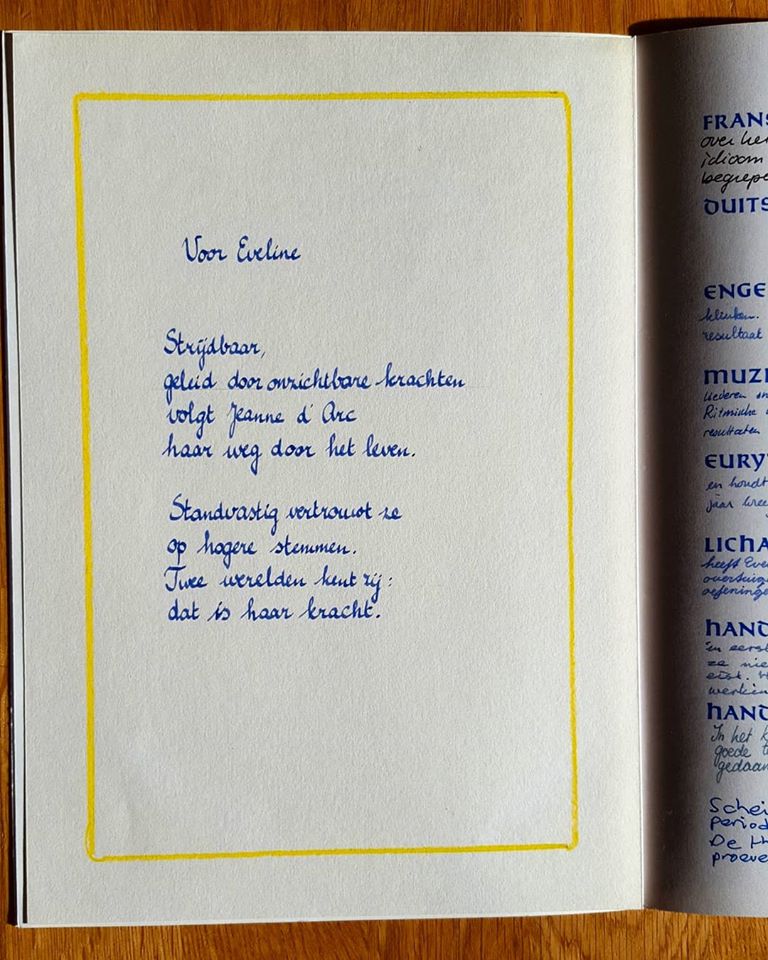 Voor Eveline
Strijdbaar,
geleid door onzichtbare krachten
volgt Jeanne d'Arc
haar weg door het leven.
Standvastig vertrouwt ze
op hogere stemmen.
Twee werelden kent zij:
dat is haar kracht.
FRANS
over he
idioom
begrepe
DUITS
ENGE
klinken.
resultaat
MUZI
liederen
Ritmische
resultaten
EURY
en houdt
jaar
LICHA
heeft Eve
overtuig
oefeninge
HAND
en eerst
ze nie
eist.
werken
HAND
In het k
goede t
gedaan
Schei
period
De H
proeve